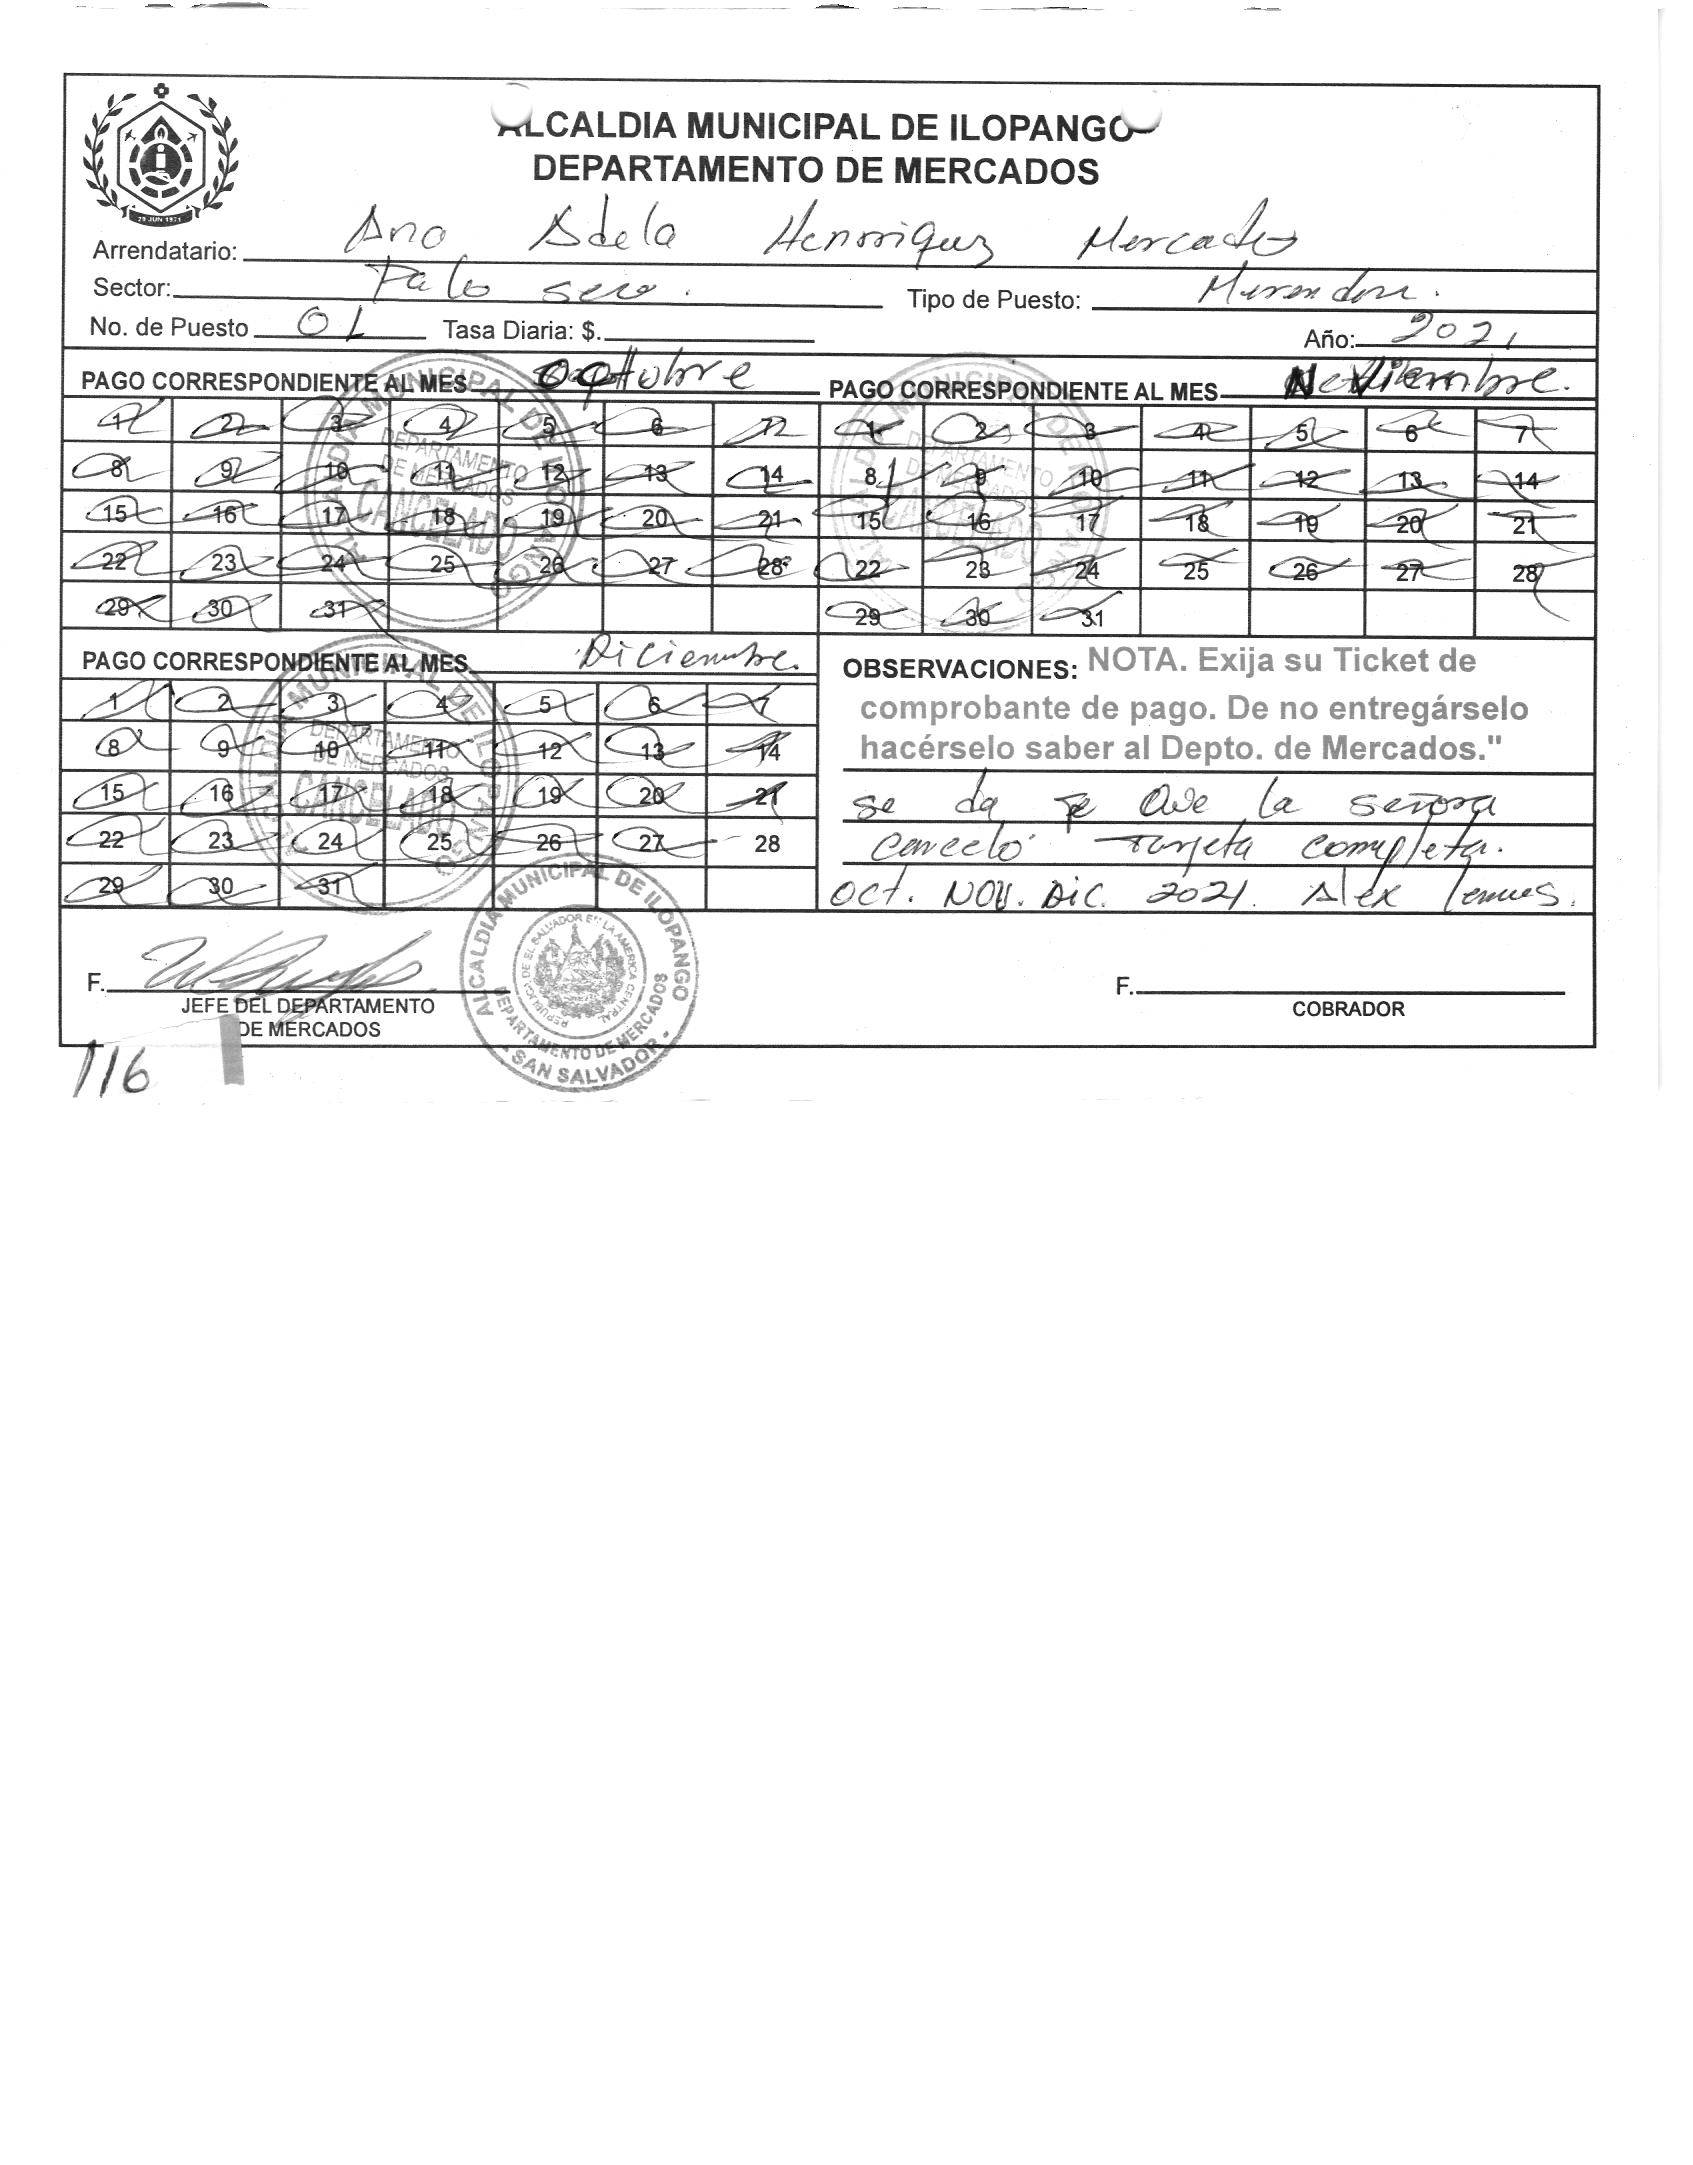 ALCALDIA MUNICIPAL DE ILOPANGO
DEPARTAMENTO DE MERCADOS
29 JUN 1971
Arrendatario: Ana Adela Henrriquez Mercado
Sector: Palo seco. Tipo de Puesto:
No. de Puesto 01 Tasa Diaria: $. Año: 2021
PAGO CORRESPONDIENTE AL MES Octubre PAGO CORRESPONDIENTE AL MES Noviembre.
1 2 3 4 5 6 7 1 2 3 4 5 6 7
8 9 10 11 12 13 14 8 9 10 11 12 13 14
15 16 17 18 19 20 21 15 16 17 18 19 20 21
22 23 24 25 26 27 28 22 23 24 25 26 27 28
29 30 31 29 30 31
ALCALDIA MUNICIPAL DE ILOPANGO
DEPARTAMENTO
DE MERCADOS
CANCELADO
ALCALDIA MUNICIPAL DE ILOPANGO
DEPARTAMENTO
DE MERCADOS
CANCELADO
PAGO CORRESPONDIENTE AL MES Diciembre.
1 2 3 4 5 6 7
8 9 10 11 12 13 14
15 16 17 18 19 20 21
22 23 24 25 26 27 28
29 30 31
ALCALDIA MUNICIPAL DE ILOPANGO
DEPARTAMENTO
DE MERCADOS
CANCELADO
OBSERVACIONES: NOTA. Exija su Ticket de
comprobante de pago. De no entregárselo
hacérselo saber al Depto. de Mercados."
se da fe Que la señora
cancelo Tarjeta completa.
Oct. NOV. Dic. 2021. Alex Lemus.
F.
JEFE DEL DEPARTAMENTO
DE MERCADOS
ALCALDIA MUNICIPAL DE ILOPANGO
REPUBLICA DE EL SALVADOR EN LA AMERICA CENTRAL
DEPARTAMENTO DE MERCADOS
SAN SALVADOR
F.
COBRADOR
116